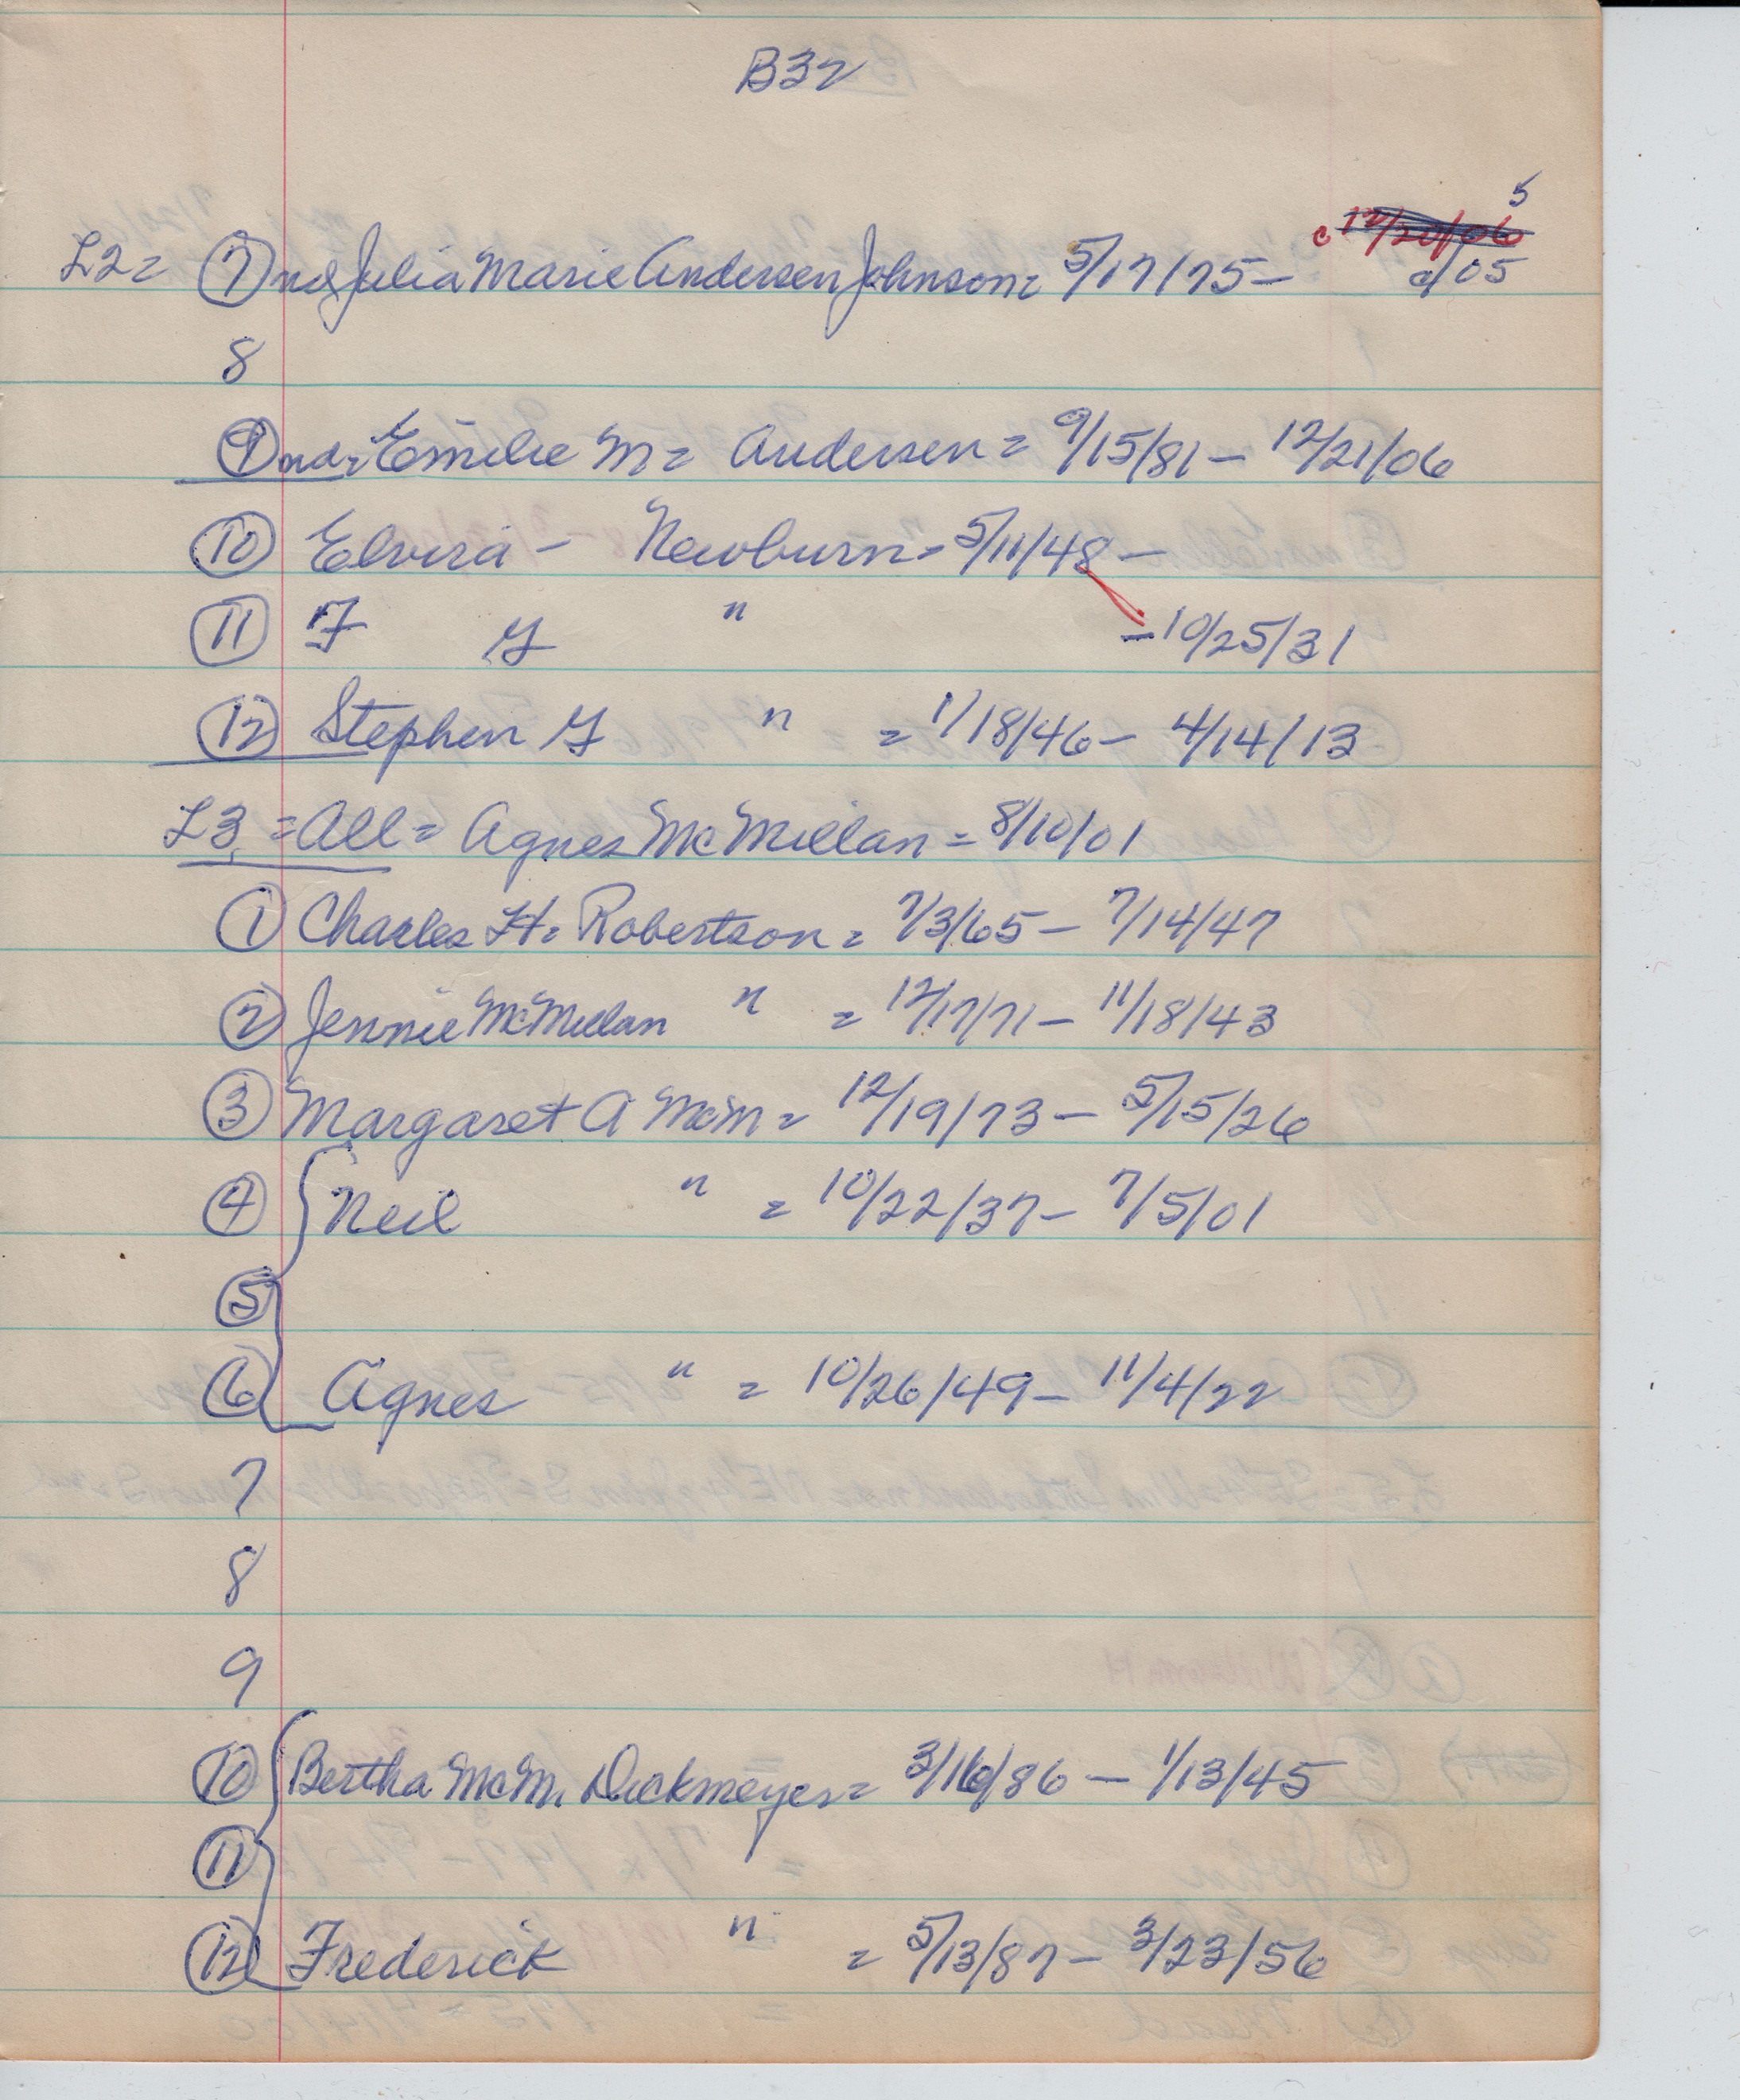 B32
5
c 12/20/06
L2= ⑦ nd Julia Marie Andersen Johnson= 5/17/75– d/05
8
⑨ nd= Emilie M= Andersen= 9/15/81– 12/21/06
⑩ Elvira – Newburn= 5/11/48–
⑪ F G " –10/25/31
⑫ Stephen G " =1/18/46– 4/14/13
L3 =All= Agnes McMillan= 8/10/01
① Charles H= Robertson= 7/3/65– 7/14/47
② Jennie McMillan " = 12/17/71– 11/18/43
③ Margaret A McM= 12/19/73– 5/15/26
④ Neil " = 10/22/37– 7/5/01
⑤
⑥ Agnes " = 10/26/49– 11/4/22
7
8
9
⑩ Bertha McM. Dickmeyer= 3/16/86 – 1/13/45
⑪
⑫ Frederick " = 5/13/87– 3/23/56